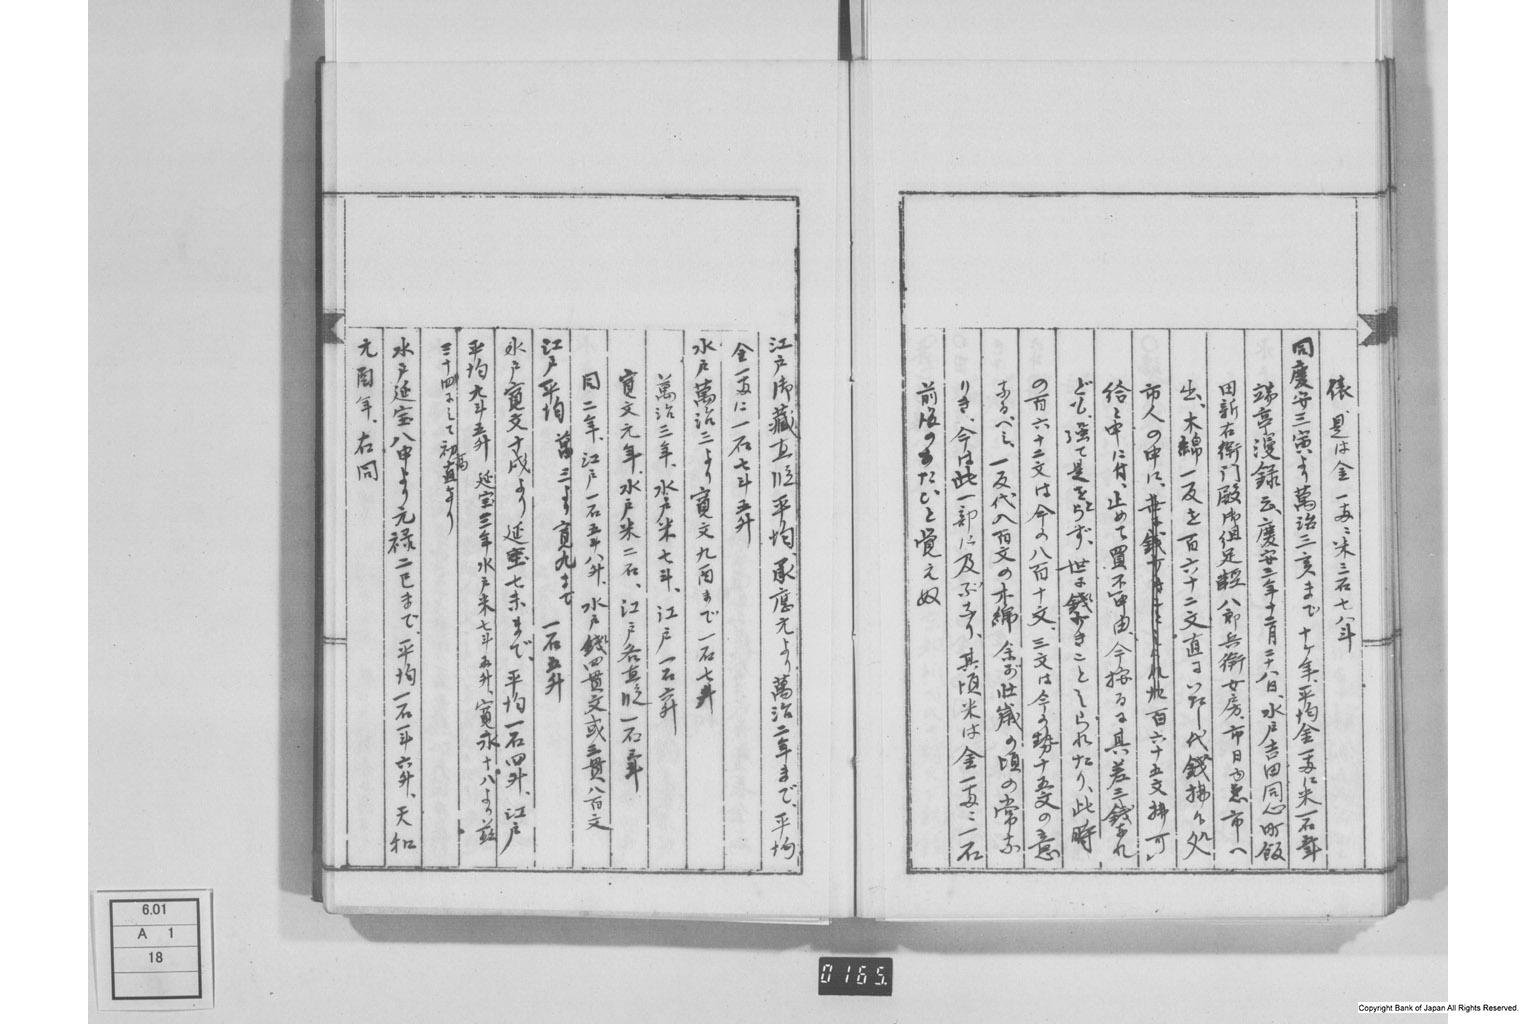 俵、是は金一両ニ米三石七八斗
同慶安三寅より萬治三亥まで十ケ年、平均金一両に米一石
瑞亭漫録云、慶安二年十二月二十八日、水戸吉田同心町飯
田新右衛門殿御組足軽八郎兵衛女房、市日ゆへ市へ
出、木綿一反を百六十二文直に代銭拂候処
市人の中に、百六十五文拂可
給と申に付、止めて買不申由、今按るに其差三銭なれ
ども、強て是をとらず、世に銭すきことしられたり、此時
の百六十二文は今の八百十文、三文は今の勢十五文の意
なるべし、一反代八百文の木綿、余が壮歳の頃の常な
りき、今は此一部に及ぶなり、其頃米は金一両ニ一石
前後のきたひと覚え奴
江戸御藏直段平均、承應元より萬治二年まで、平均
金一両に一石七斗五升
水戸萬治三より寛文九酉まで一石七斗
萬治三年、水戸米七斗、江戸一石六升
寛文元年、水戸米二石、江戸各直段一石三斗
同二年、江戸一石五斗八升、水戸銭四貫文或三貫八百文
江戸平均 萬三より寛九まで 一石五升
水戸寛文十戌より延宝七未まで、平均一石四升、江戸
平均九斗五升 延宝三年水戸米七斗五升、寛永十八より茲
三十四にして初高直なり
水戸延宝八申より元禄二巳まで、平均一石一斗六升、天和
元酉年、右同
6.01
A 1
18
0165.
Copyright Bank of Japan All Rights Reserved.